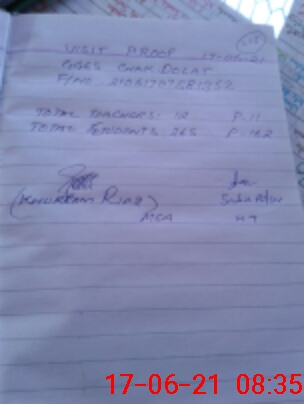 VISIT PROOF 17-06-21
GGES CHAK DOLAT
TOTAL TEACHERS: 12 P. 11
TOTAL STUDENTS: 265 P. 162
(KHURRAM RIAZ)
MEA HT
17-06-21 08:35